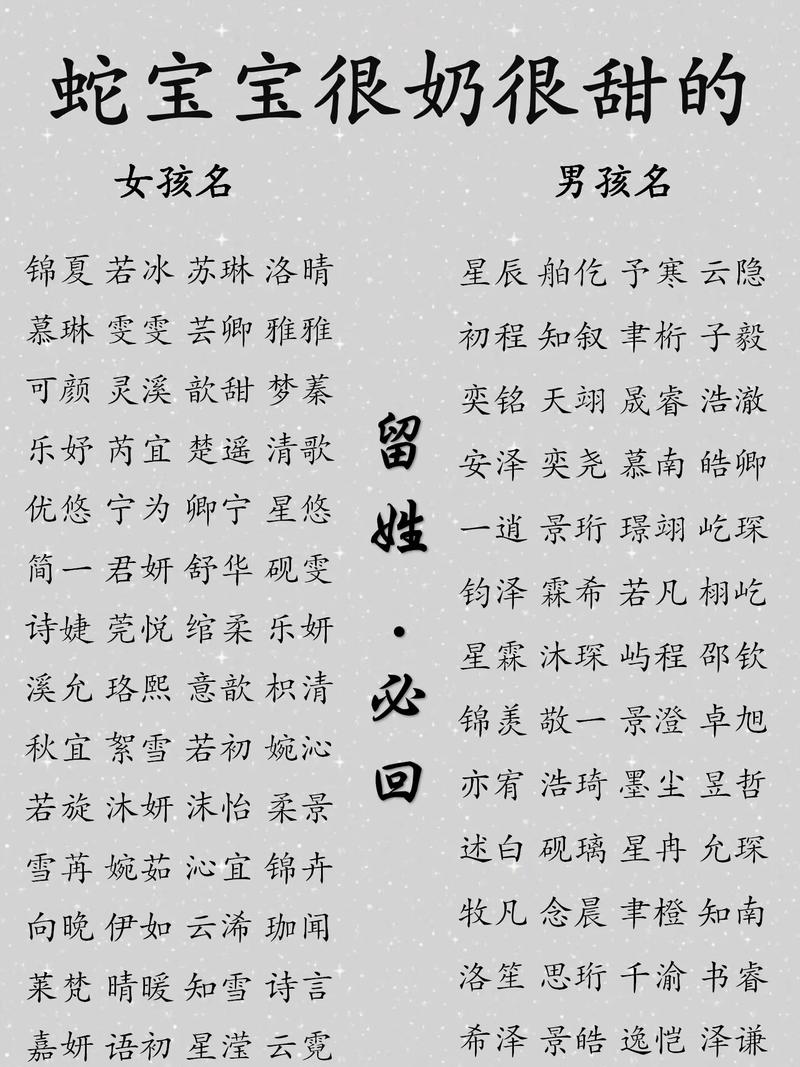 蛇宝宝很奶很甜的
女孩名
锦夏 若冰 苏琳 洛晴
慕琳 雯雯 芸卿 雅雅
可颜 灵溪 歆甜 梦蓁
乐妤 芮宜 楚遥 清歌
优悠 宁为 卿宁 星悠
简一 君妍 舒华 砚雯
诗婕 莞悦 绾柔 乐妍
溪允 珞熙 意歆 枳清
秋宜 絮雪 若初 婉沁
若旋 沐妍 沫怡 柔景
雪苒 婉茹 沁宜 锦卉
向晚 伊如 云浠 珈闻
莱梵 晴暖 知雪 诗言
嘉妍 语初 星滢 云霓
留姓·必回
男孩名
星辰 舶仡 予寒 云隐
初程 知叙 聿桁 子毅
奕铭 天翊 晟睿 浩澈
安泽 奕尧 慕南 皓卿
一逍 景珩 璟翊 屹琛
钧泽 霖希 若凡 栩屹
星霖 沐琛 屿程 邵钦
锦羡 敬一 景澄 卓旭
亦宥 浩琦 墨尘 昱哲
述白 砚璃 星冉 允琛
牧凡 念晨 聿橙 知南
洛笙 思珩 千渝 书睿
希泽 景皓 逸恺 泽谦